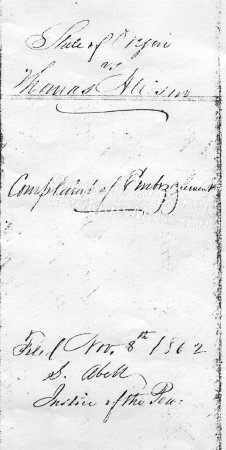 State of Oregon
vs
Thomas Allison
Complaint of Embezzlement
Filed Nov. 8th 1862
S. Abell
Justice of the Peac